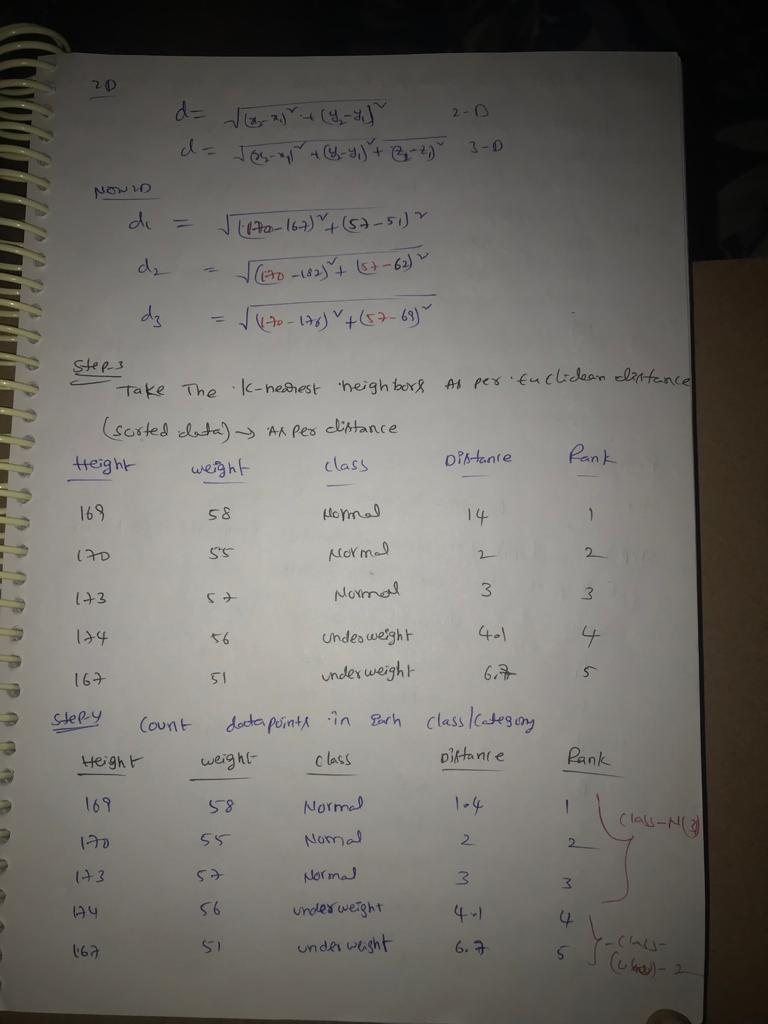 2D
d = √(x₂-x₁)² + (y₂-y₁)² 2-D
d = √(x₂-x₁)² + (y₂-y₁)² + (z₂-z₁)² 3-D
NOW 2D
d₁ = √(170-167)² + (57-51)²
d₂ = √(170-182)² + (57-62)²
d₃ = √(170-176)² + (57-69)²
Step-3
Take The K-nearest neighbors As per Euclidean distance
(sorted data) → As per distance
Height weight class Distance Rank
169 58 Normal 14 1
170 55 Normal 2 2
173 57 Normal 3 3
174 56 underweight 4.1 4
167 51 underweight 6.7 5
Step-4 Count datapoints in Each class/Category
Height weight class Distance Rank
169 58 Normal 1.4 1
170 55 Normal 2 2
173 57 Normal 3 3
class-N(3)
174 56 underweight 4.1 4
167 51 underweight 6.7 5
-class-
- 2